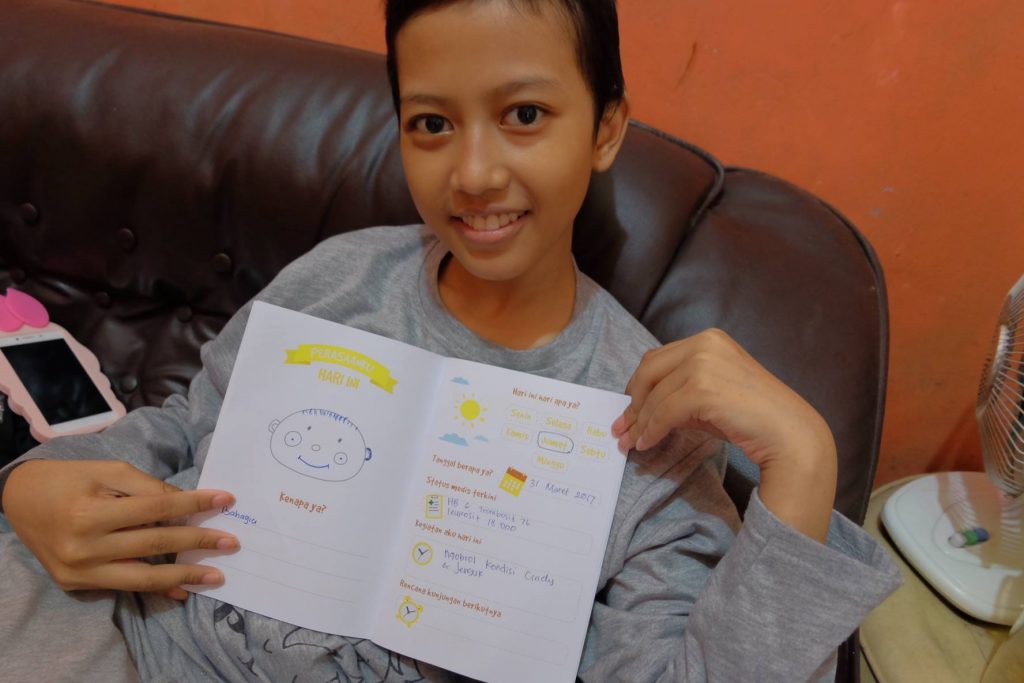 PERASAANKU
HARI INI
Kenapa ya?
Bahagia
Hari ini hari apa ya?
Senin Selasa Rabu
Kamis Jumat Sabtu
Minggu
Tanggal berapa ya? 31 Maret 2017
Status medis terkini
HB 6 Trombosit 76
Leukosit 18.000
Kegiatan aku hari ini
Ngobrol Kondisi Cindy
& Jenguk
Rencana kunjungan berikutnya